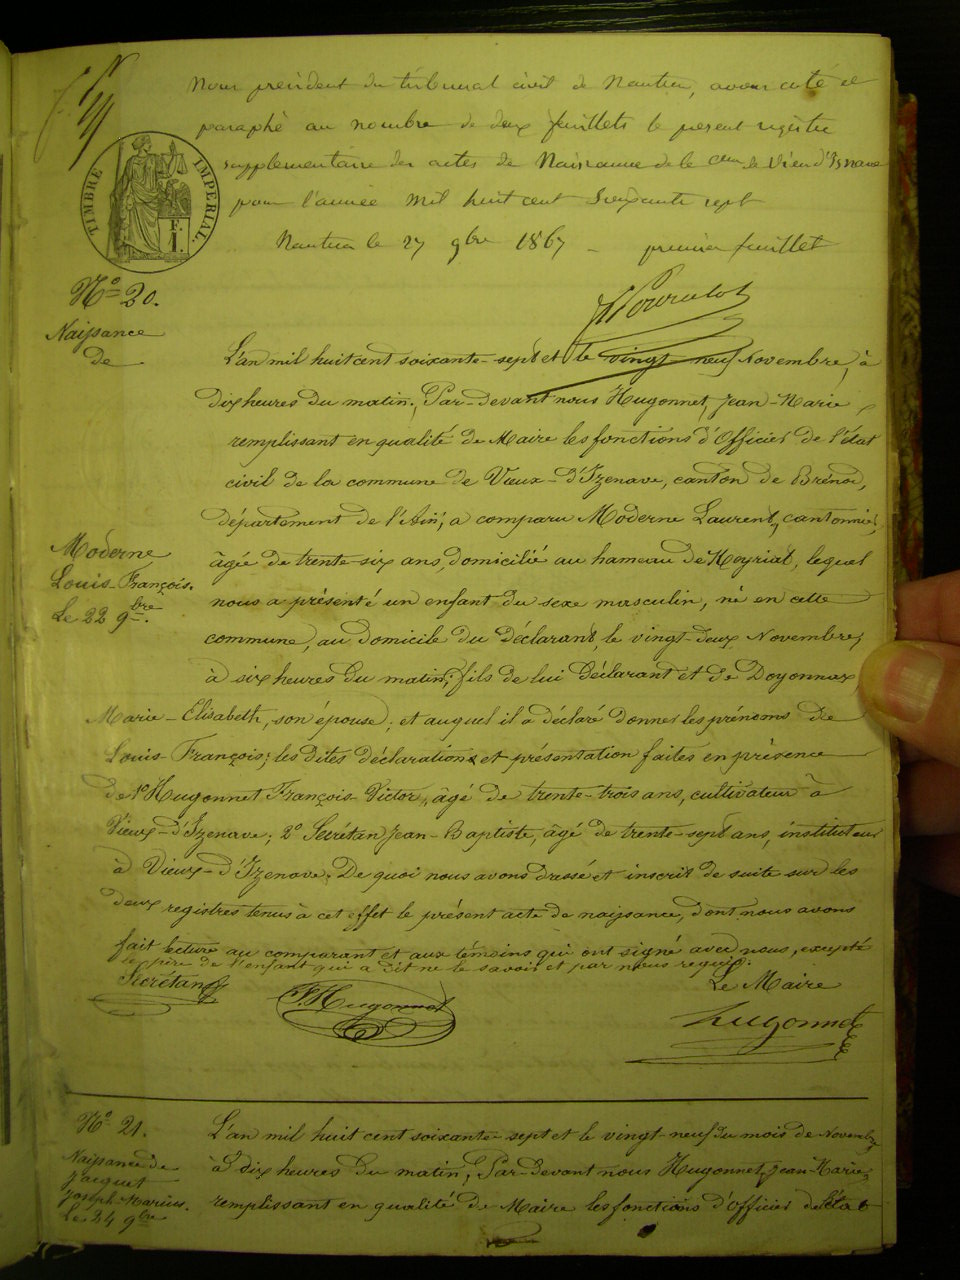 Nous président du tribunal civil de Nantua, avons coté et
paraphé au nombre de deux feuillets le present registre
supplementaire des actes de Naissance de la cne de Vieu d'Isnave
pour l'année mil huit cent soixante sept
Nantua le 27 9bre 1867 - premier feuillet
TIMBRE IMPERIAL.
F.
1.
No 20.
Naissance
de
Moderne
Louis-François.
Le 22 9bre.
L'an mil huit cent soixante-sept et le vingt-neuf Novembre, à
dix heures du matin; Par-devant nous Hugonnet, Jean-Marie
remplissant en qualité de Maire les fonctions d'Officier de l'état
civil de la commune de Vieux-d'Izenave, canton de Brénod,
département de l'Ain, a comparu Moderne Laurent, cantonnier,
âgé de trente-six ans, domicilié au hameau de Heyriat, lequel
nous a présenté un enfant du sexe masculin, né en cette
commune, au domicile du déclarant, le vingt-deux Novembre,
à six heures du matin; fils de lui déclarant et de Doyonnax
Marie-Elisabeth, son épouse; et auquel il a déclaré donner les prénoms de
Louis-François; les dites déclarations et présentation faites en présence
de 1o Hugonnet François-Victor, âgé de trente-trois ans, cultivateur à
Vieux-d'Izenave; 2o Secrétan Jean-Baptiste, âgé de trente-sept ans, instituteur
à Vieux-d'Izenave. De quoi nous avons dressé et inscrit de suite sur les
deux registres tenus à cet effet le présent acte de naissance, dont nous avons
fait lecture au comparant et aux témoins qui ont signé avec nous, excepté
le père de l'enfant qui a dit ne le savoir et par nous requis.
Secrétan
F. Hugonnet
Le Maire
Hugonnet
No 21.
Naissance de
Jacquet
Joseph-Marius.
Le 24 9bre
L'an mil huit cent soixante-sept et le vingt-neuf du mois de Novembre
à dix heures du matin; Par-devant nous Hugonnet, Jean-Marie,
remplissant en qualité de Maire les fonctions d'Officier de l'état